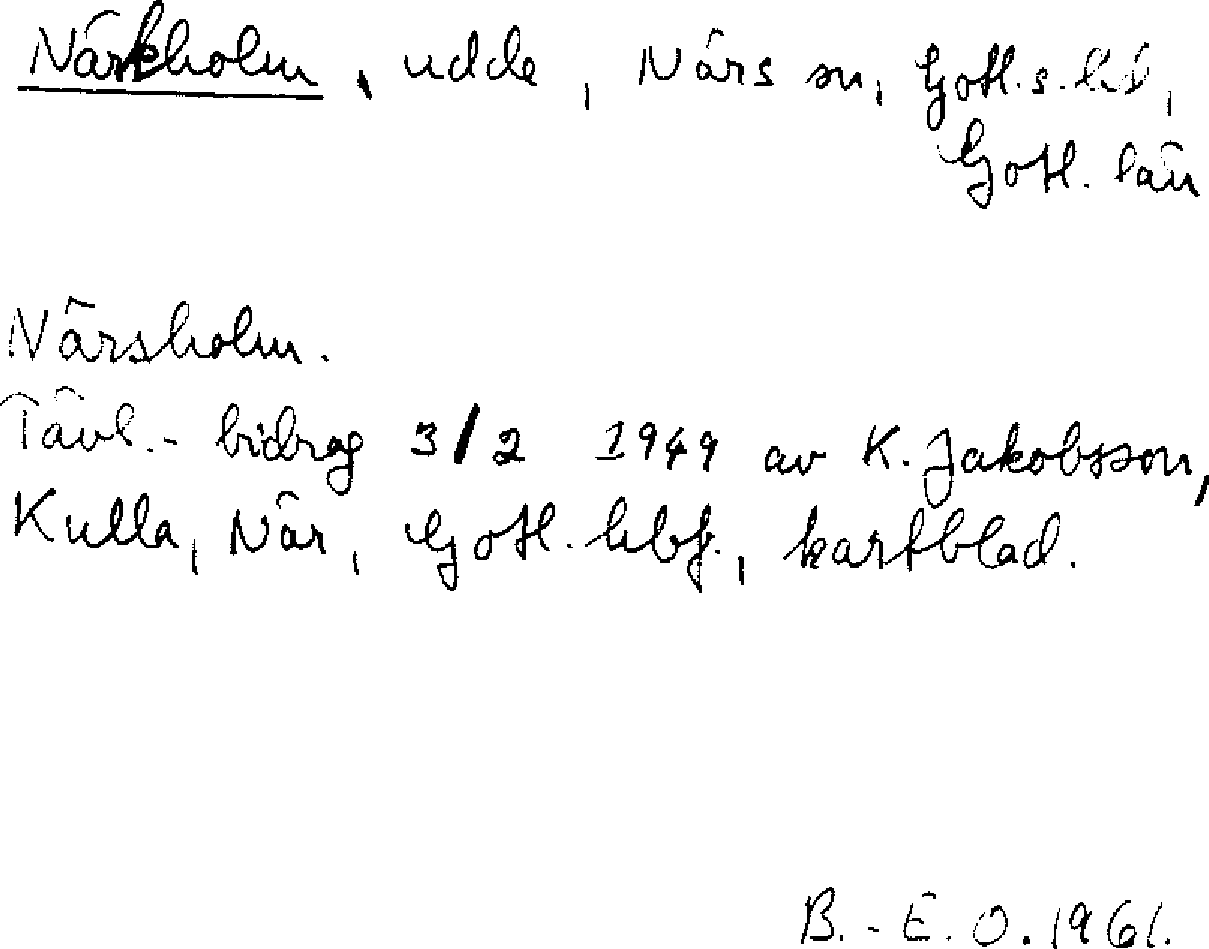 Närkholm, udde, Närs sn, Gotl.s.hd,
Gotl. län
Närsholm.
Tävl.- bidrag 3/2 1949 av K. Jakobsson,
Kulla, När, Gotl. hbf., kartblad.
B.-E.O. 1961.